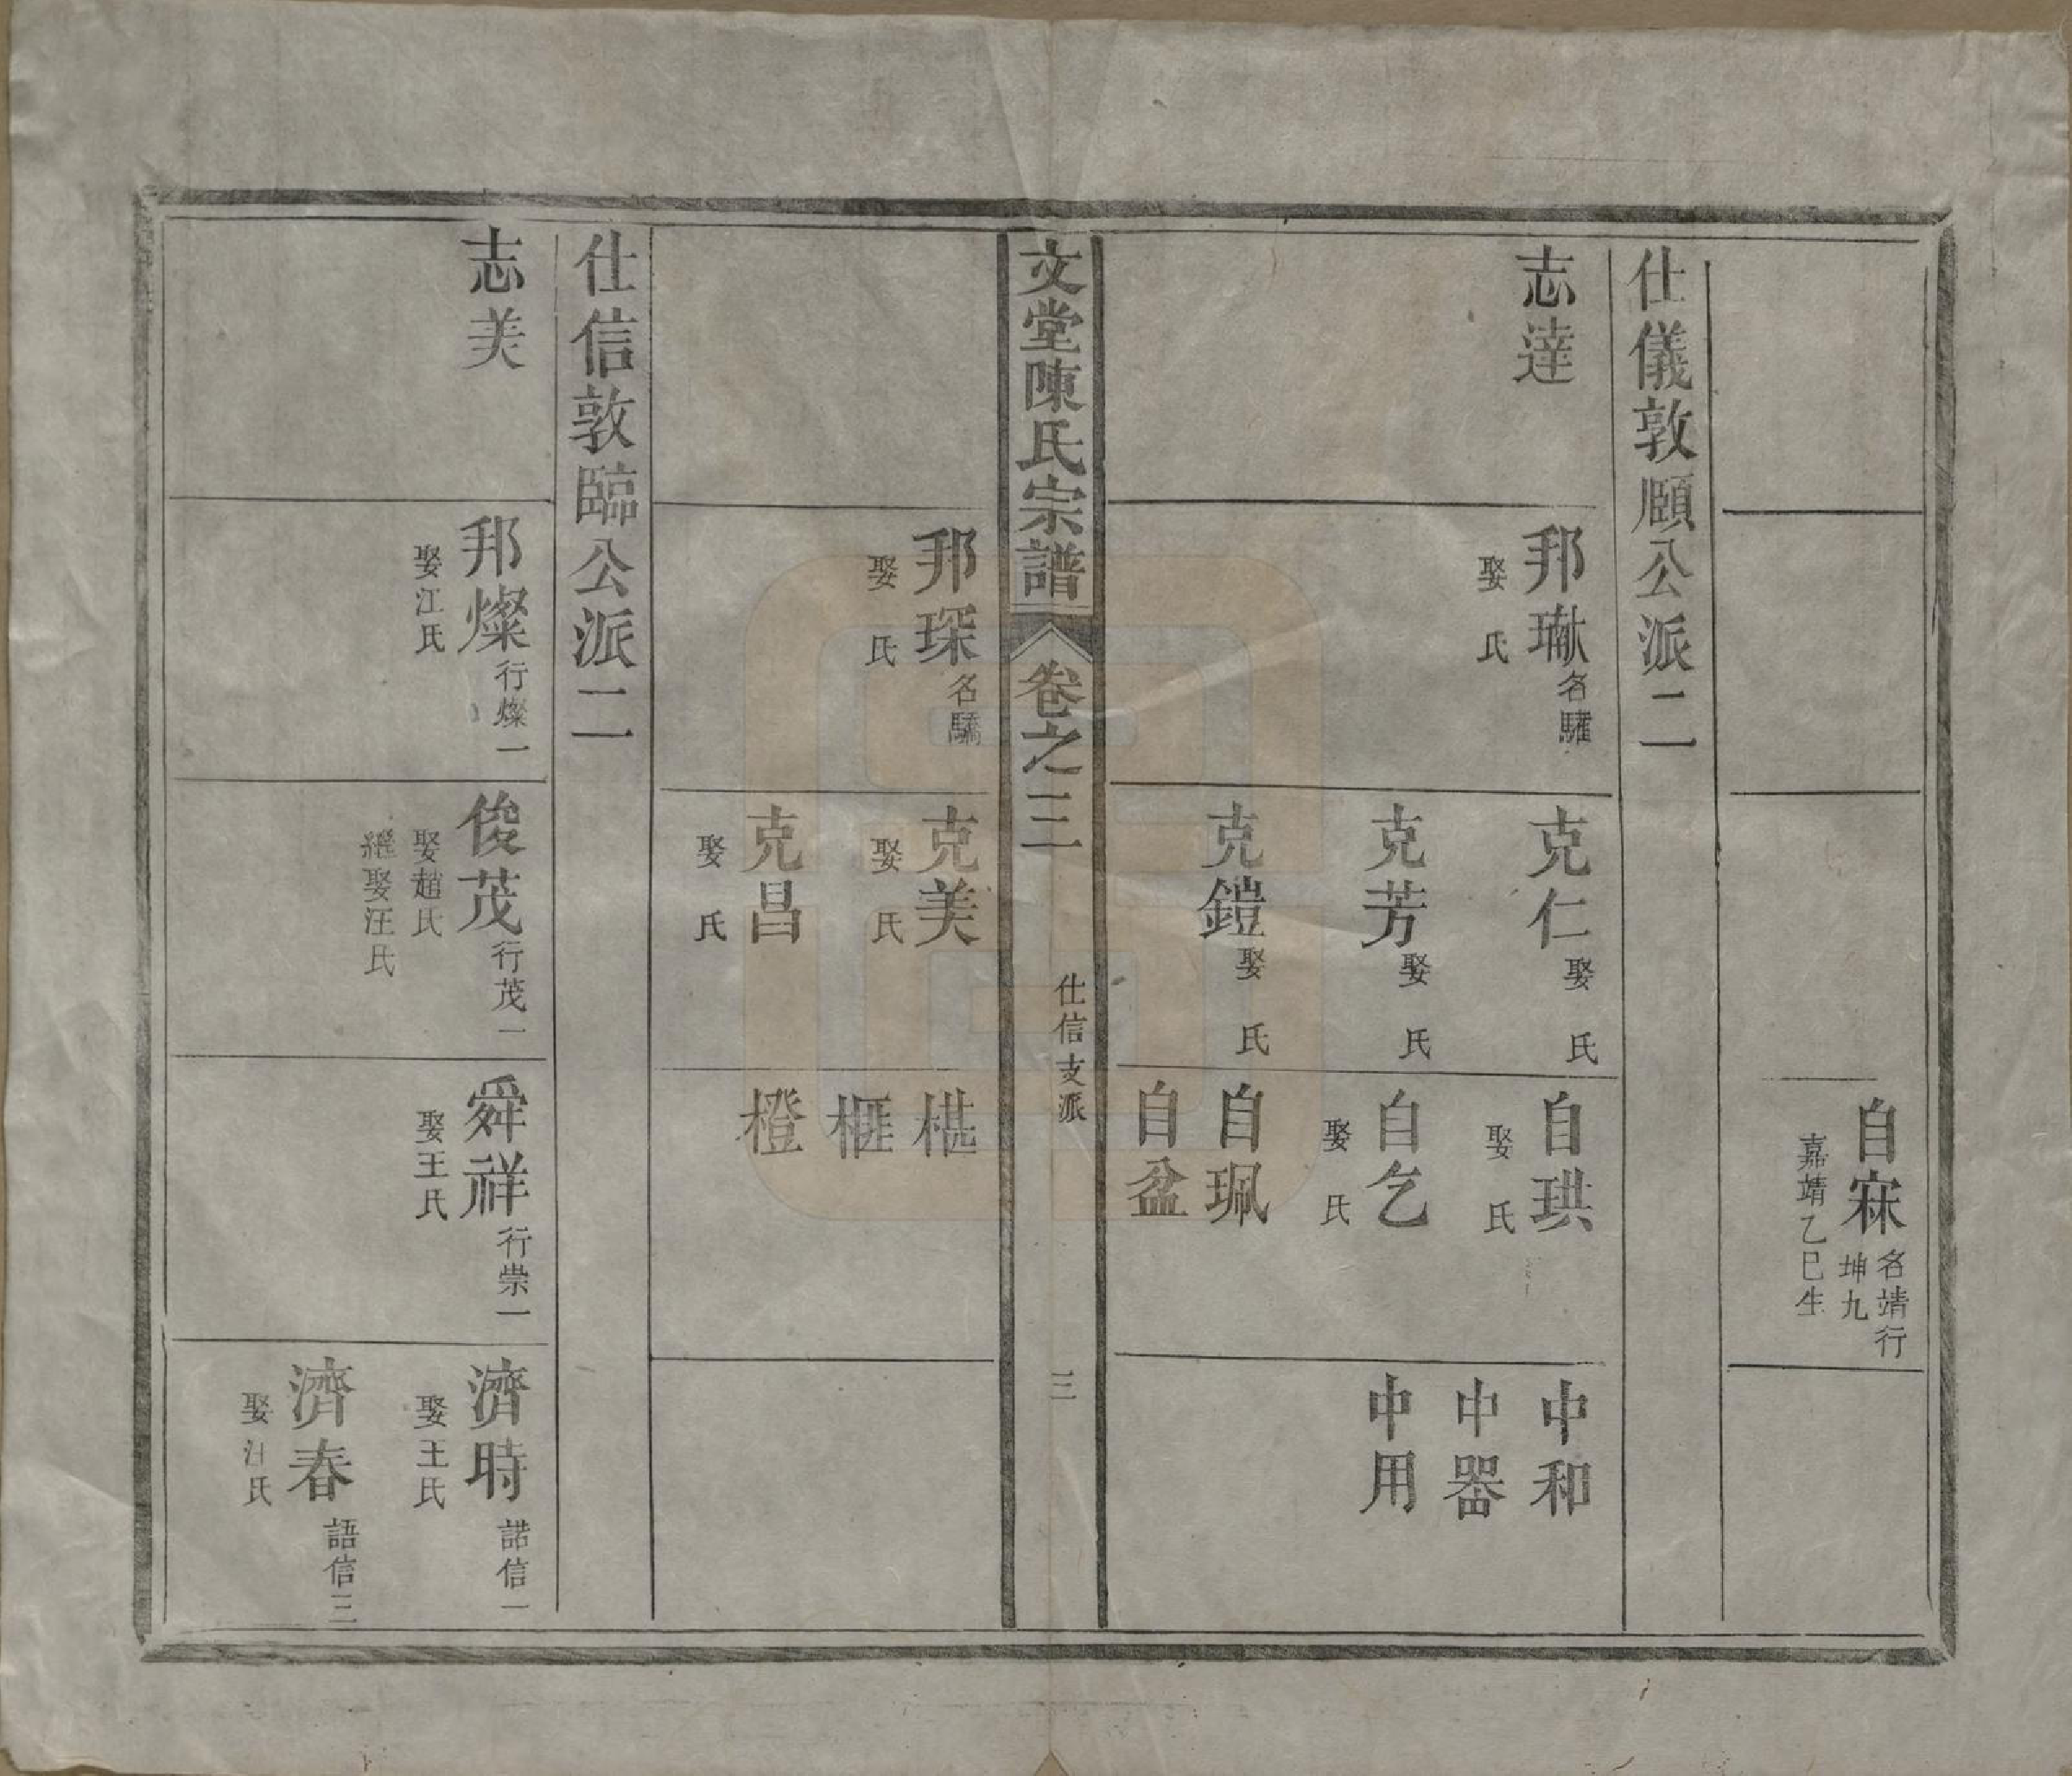 自寀
名靖行
坤九
嘉靖乙巳生
仕儀敦頤公派二
志達
邦瓛名驩
娶　氏
克仁娶　氏
克芳娶　氏
克鎧娶　氏
自珙
娶　氏
自乞
娶　氏
自珮
自盆
中和
中器
中用
文堂陳氏宗譜
卷之三
仕信支派
三
邦琛名驕
娶　氏
克美
娶　氏
克昌
娶　氏
椹
榧
橙
仕信敦臨公派二
志美
邦燦行燦一
娶江氏
俊茂行茂一
娶趙氏
繼娶汪氏
舜祥行崇一
娶王氏
濟時諾信一
娶王氏
濟春語信三
娶汪氏